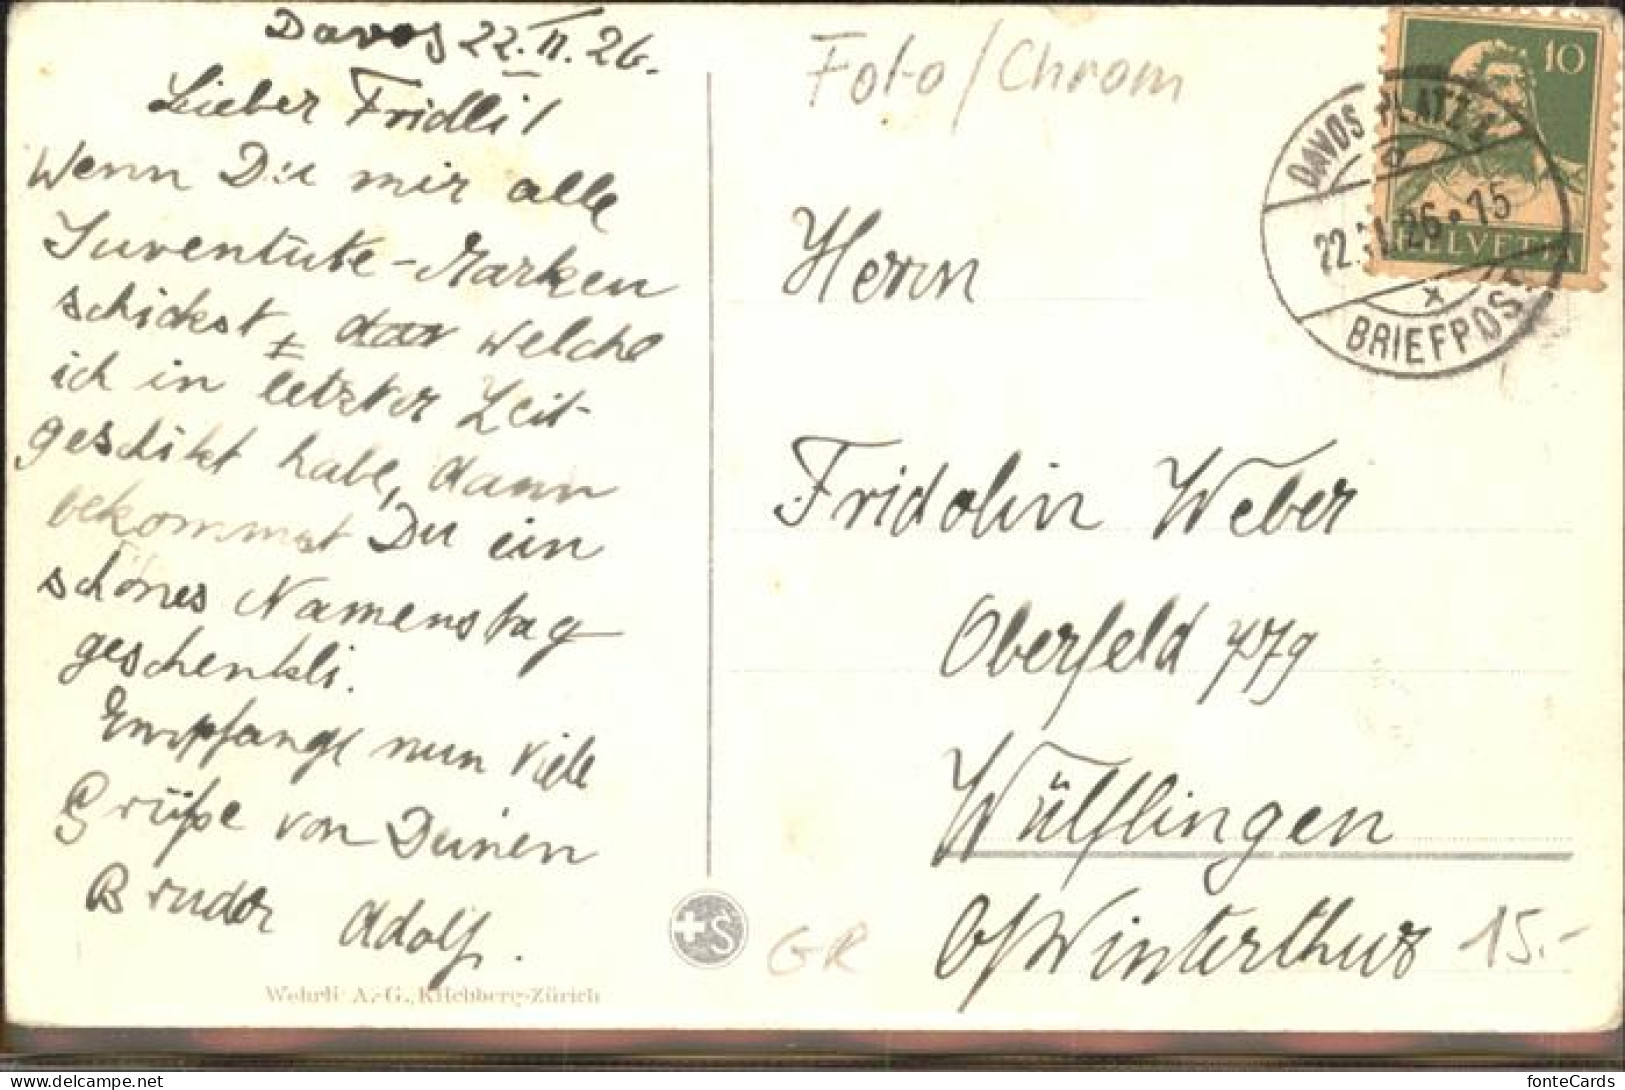 Davos 22. II. 26.
Lieber Fridli!
Wenn Du mir alle
Juventute-Marken
schickst, welche
ich in letzter Zeit
geschikt habe, dann
bekommst Du ein
schönes Namenstag
geschenkli.
Empfange nun viele
Grüße von Deinen
Bruder Adolf.
Wehrli A.-G., Kilchberg-Zürich
Foto/Chrom
10
HELVETIA
DAVOS PLATZ 1
22.II.26.-15
BRIEFPOST
Herrn
Fridolin Weber
Oberfeld
Wülflingen
b/Winterthur
+S
GR
15.-
fonteCards